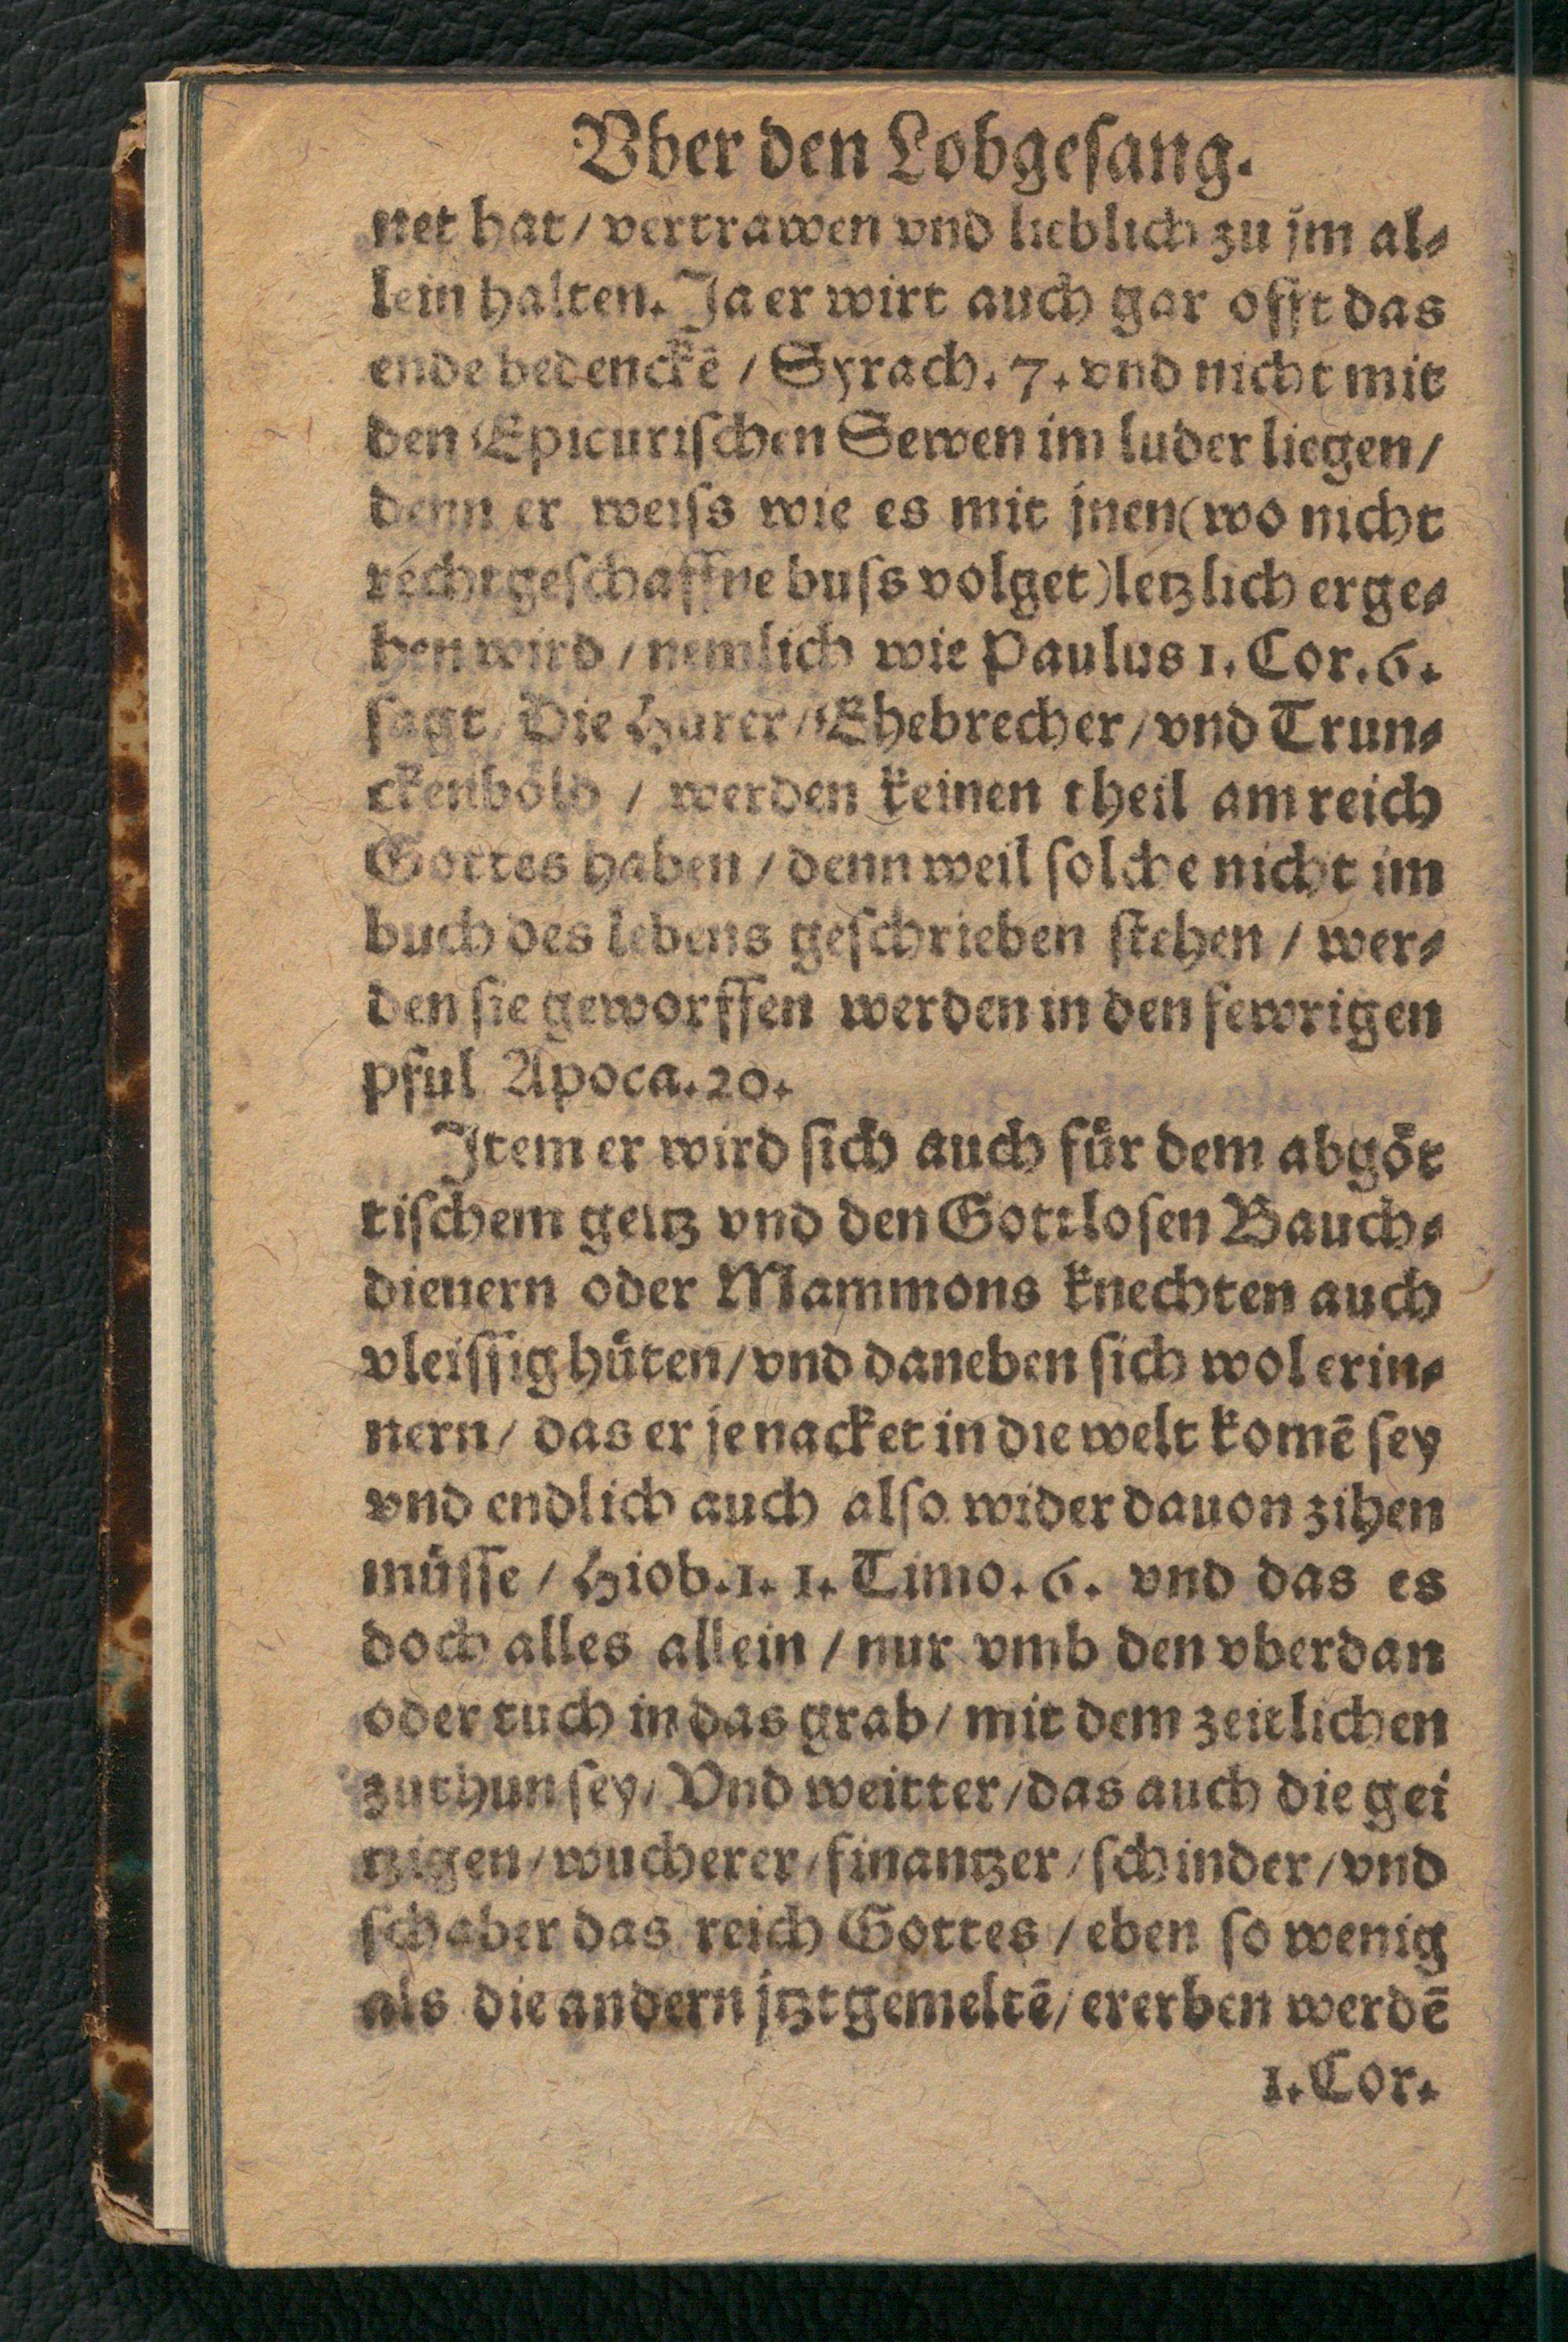 Vber den Lobgesang.
net hat / vertrawen vnd lieblich zu jm al⸗
lein halten. Ja er wirt auch gar offt das
ende bedenckē / Syrach. 7. vnd nicht mit
den Epicurischen Sewen im luder liegen /
denn er weiss wie es mit jnen (wo nicht
rechtgeschaffne buss volget) letzlich erge⸗
hen wird / nemlich wie Paulus 1. Cor. 6.
sagt / Die Hurer / Ehebrecher / vnd Trun⸗
ckenböld / werden keinen theil am reich
Gottes haben / denn weil solche nicht im
buch des lebens geschrieben stehen / wer⸗
den sie geworffen werden in den fewrigen
pful Apoca. 20.
Item er wird sich auch für dem abgöt
tischem geitz vnd den Gottlosen Bauch⸗
dienern oder Mammons knechten auch
vleissig hüten / vnd daneben sich wol erin⸗
nern / das er je nacket in die welt komē sey
vnd endlich auch also wider dauon zihen
müsse / Hiob. 1. 1. Timo. 6. vnd das es
doch alles allein / nur vmb den vberdan
oder tuch in das grab / mit dem zeitlichen
zuthun sey / Vnd weitter / das auch die gei
tzigen / wucherer / finantzer / schinder / vnd
schaber das reich Gottes / eben so wenig
als die andern jtzt gemeltē / ererben werdē
1. Cor.